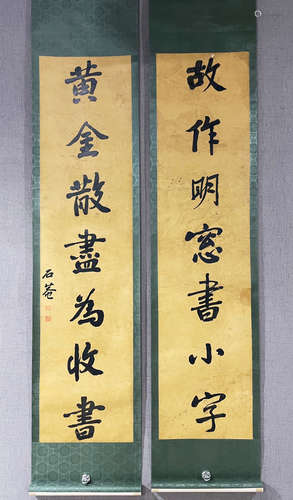 故作明窓書小字
黄金散盡為收書
石菴